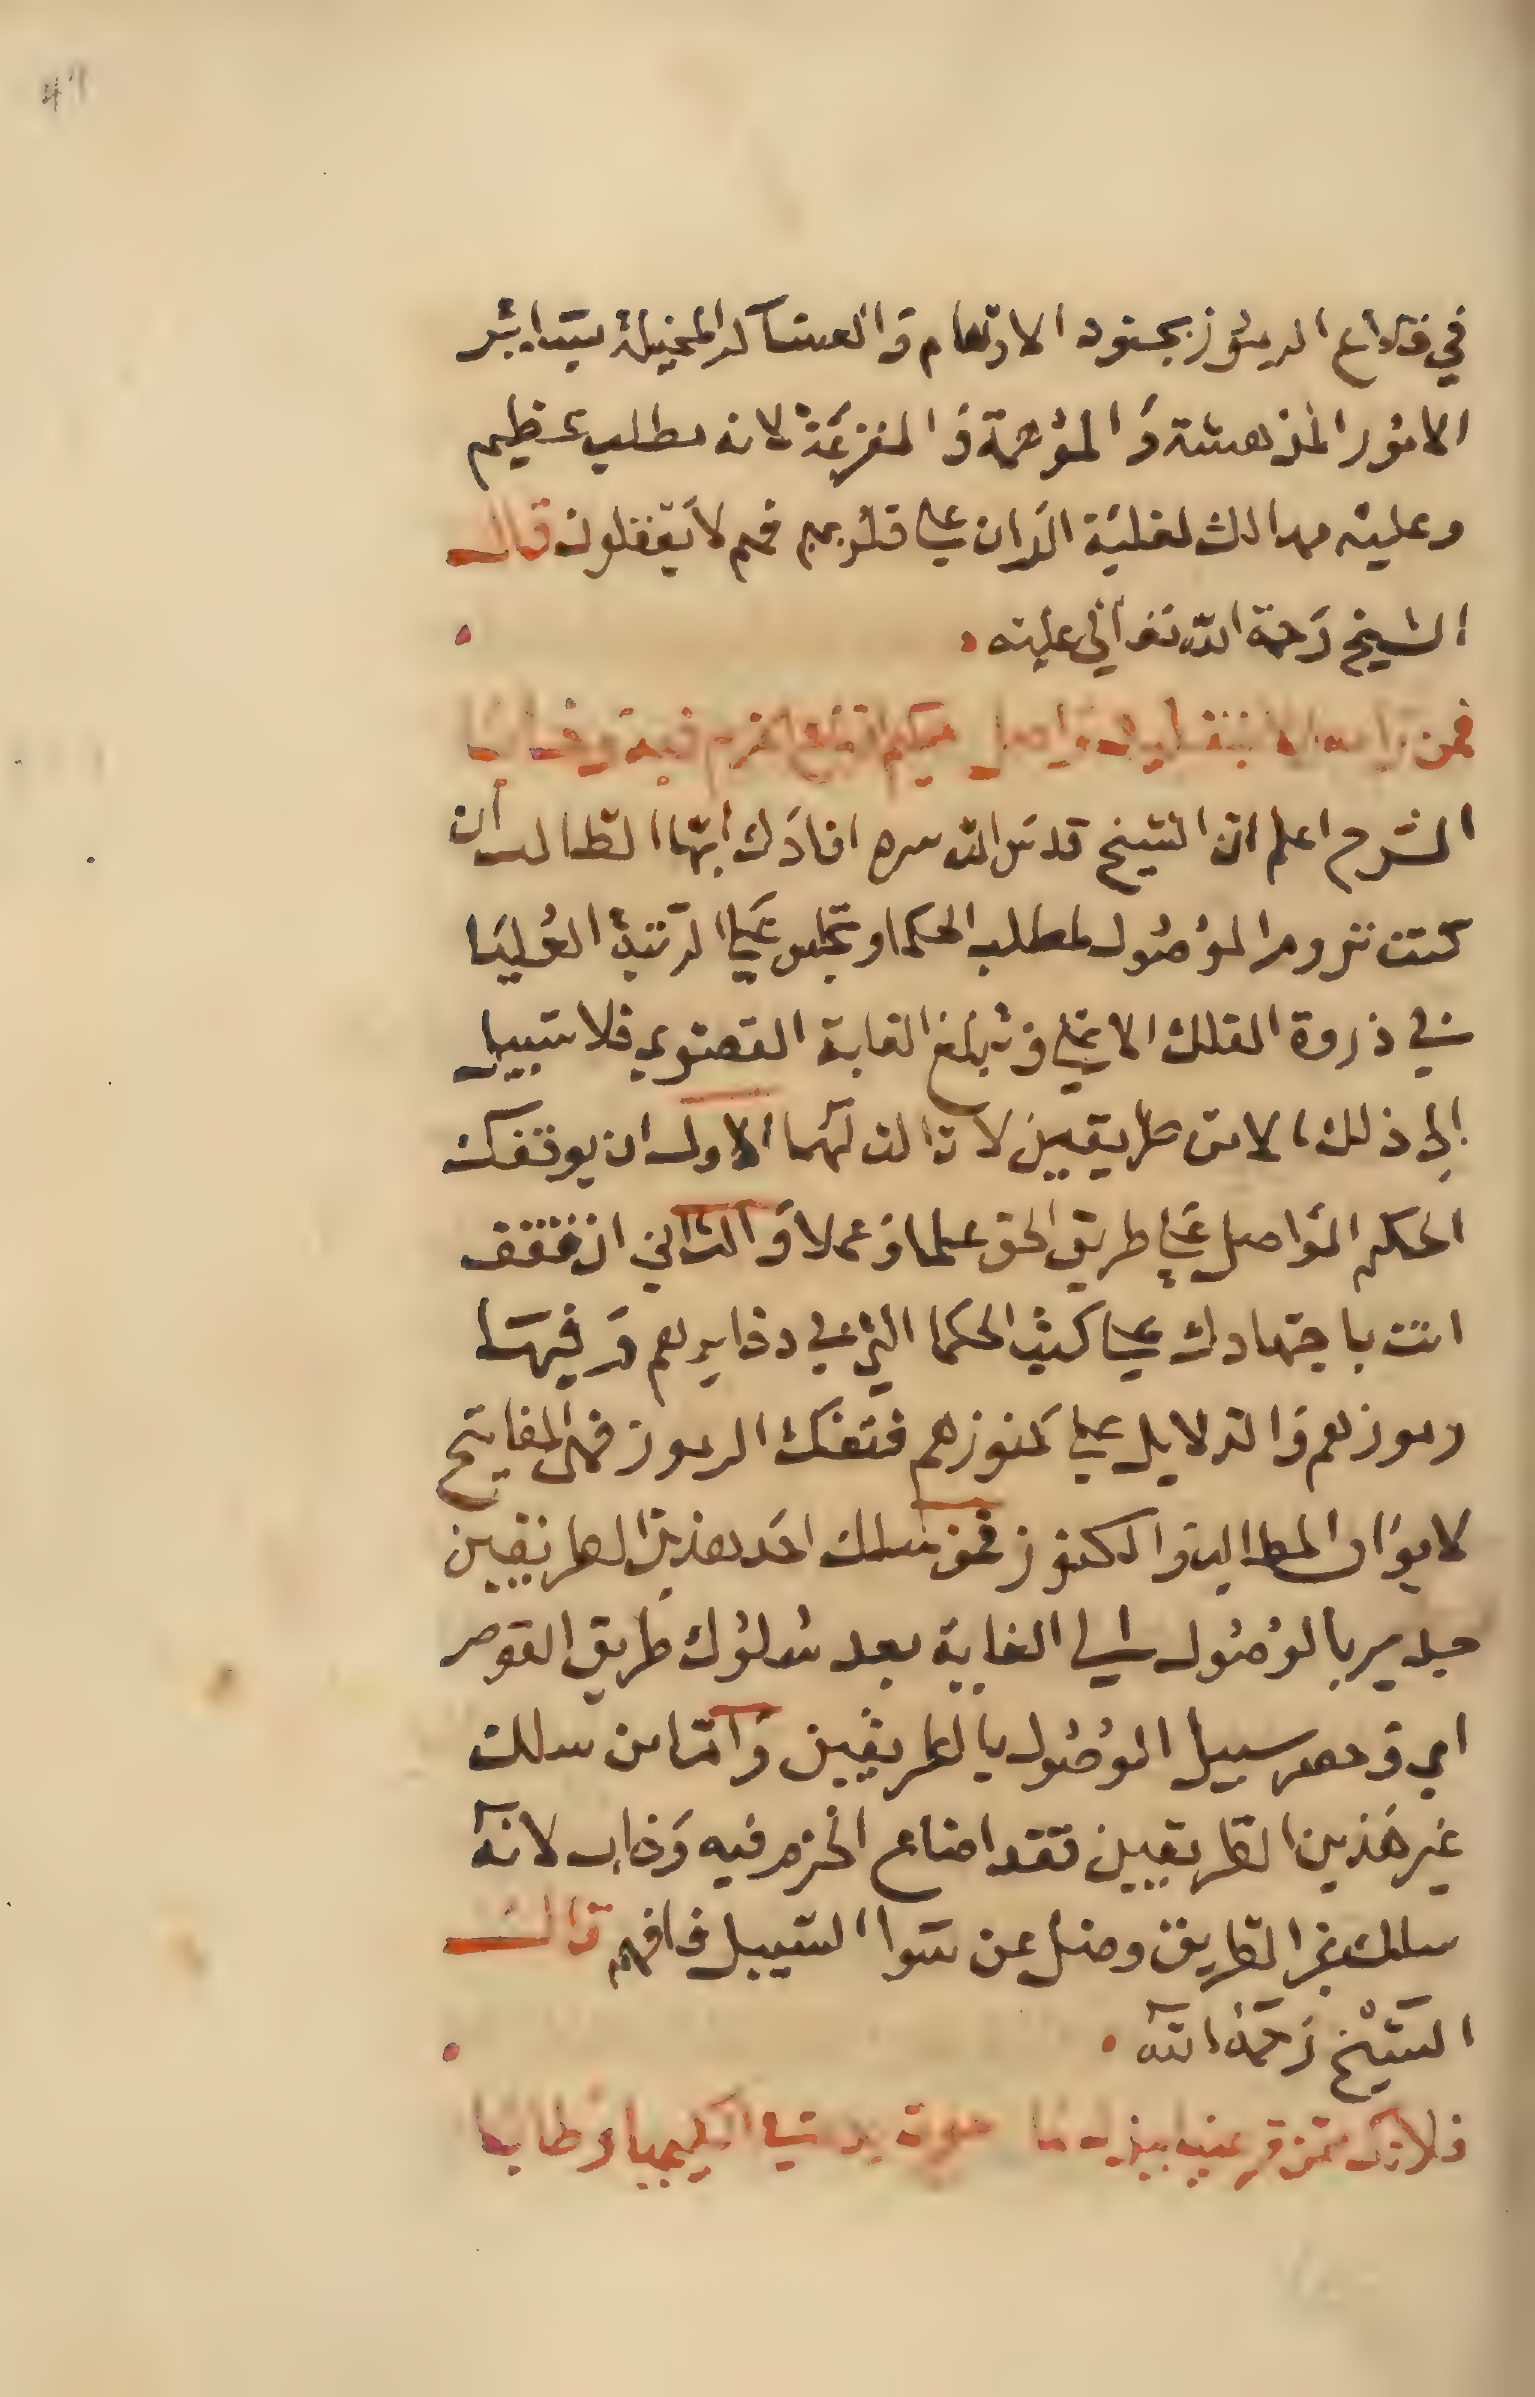 في قلاع الرموز بجنود الاوهام والعساكر المخيلة بتدابير
الامور المدهشة والموهمة والمفزعة لانه مطلب عظيم
وعليه مهالك لغلبة الران على قلوبهم فهم لا يعقلون قال
الشيخ رحمة الله تعالى عليه
فمن
الشرح اعلم ان الشيخ قدس الله سره افادك ايها الطالب ان
كنت تروم الوصول لمطلب الحكما وتجلس على الرتبة العليا
في ذروة الفلك الاعلى وتبلغ الغاية القصوى فلا سبيل
الى ذلك الا من طريقين لا ثالث لهما الاول ان يوقفك
الحكيم الواصل على طريق الحق علما وعملا والثاني ان تقف
انت باجتهادك على كتب الحكما التي هي دفاترهم وفيها
رموزهم والدلايل على كنوزهم فتفك الرموز فهى المفاتيح
لابواب المطالب والكنوز فمن سلك احد هذين الطريقين
جدير بالوصول الى الغاية بعد سلوك طريق القوم
اي وحصر سبيل الوصول بالطريقين واما من سلك
غير هذين الطريقين فقد اضاع الحزم فيه وخاب لانه
سلك بغير الطريق وضل عن سوا السبيل فافهم قال
الشيخ رحمه الله
فلا تك ممن الكيميا وطالبا